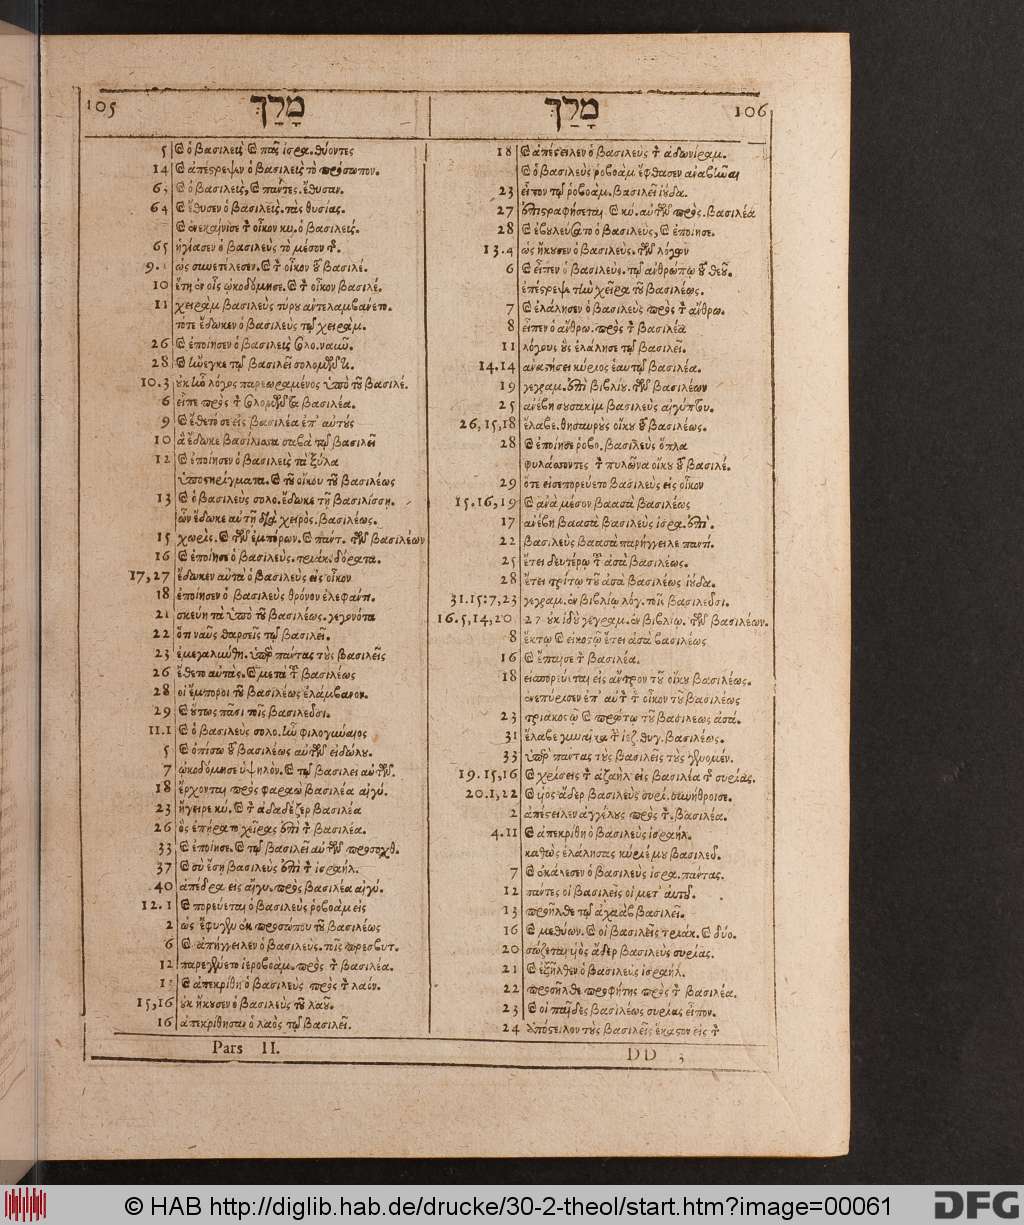 105 מָלַךְ
5 Θ ὁ βασιλεὺς Θ πᾶς ἰσρα. θύοντες
14 Θ ἀπέστρεψεν ὁ βασιλεὺς τὸ πρόσωπον.
63 Θ ὁ βασιλεὺς, Θ πάντες. ἔθυσαν.
64 Θ ἔθυσεν ὁ βασιλεὺς. τὰς θυσίας.
Θ ἐνεκαίνισε τ οἶκον κυ. ὁ βασιλεύς.
65 ἡγίασεν ὁ βασιλεὺς τὸ μέσον τ.
9.1 ὡς συνετέλεσεν. Θ τ οἶκον τοῦ βασιλέ.
10 ἔτη ἐν οἷς ᾠκοδόμησε. Θ τ οἶκον βασιλέ.
11 χειρὰμ βασιλεὺς τύρου ἀντελαμβάνετο.
τότε ἔδωκεν ὁ βασιλεὺς τῷ χειρὰμ.
26 Θ ἐποίησεν ὁ βασιλεὺς σολο. ναῦν.
28 Θ ἤνεγκε τῷ βασιλεῖ σολομῶντι.
10.3 οὐκ ἦν λόγος παρεωραμένος ὑπὸ τοῦ βασιλέ.
6 εἶπε πρὸς τ σολομῶντα βασιλέα.
9 Θ ἔθετό σε εἰς βασιλέα ἐπ' αὐτοὺς
10 ἃ ἔδωκε βασίλισσα σαβὰ τῷ βασιλεῖ
12 Θ ἐποίησεν ὁ βασιλεὺς τὰ ξύλα
ὑποστηρίγματα. Θ τοῦ οἴκου τοῦ βασιλέως
13 Θ ὁ βασιλεὺς σολο. ἔδωκε τῇ βασιλίσσῃ.
ὧν ἔδωκε αὐτῇ διὰ χειρὸς. βασιλέως.
15 χωρὶς. Θ τῶν ἐμπόρων. Θ παντ. τῶν βασιλέων
16 Θ ἐποίησε ὁ βασιλεὺς. τριάκ. δόρατα.
17,27 ἔδωκεν αὐτὰ ὁ βασιλεὺς εἰς οἶκον
18 ἐποίησεν ὁ βασιλεὺς θρόνον ἐλεφαντ.
21 σκεύη τὰ ὑπὸ τοῦ βασιλέως. γεγονότα
22 ὅτι ναῦς θαρσεῖς τῷ βασιλεῖ.
23 ἐμεγαλύνθη. ὑπὲρ πάντας τοὺς βασιλεῖς
26 ἔθετο αὐτὰς. Θ μετὰ τοῦ βασιλέως
28 οἱ ἔμποροι τοῦ βασιλέως ἐλάμβανον.
29 Θ οὕτως πᾶσι τοῖς βασιλεῦσι.
11.1 Θ ὁ βασιλεὺς σολο. ἦν φιλογύναιος
5 Θ ὀπίσω τοῦ βασιλέως αὐτῶν εἰδώλου.
7 ᾠκοδόμησε ὑψηλόν. Θ τῷ βασιλεῖ αὐτῶν.
18 ἔρχονται πρὸς φαραὼ βασιλέα αἰγύ.
23 ἤγειρε κύ. Θ τ ἀδαδέζερ βασιλέα
26 ὃς ἐπήρατο χεῖρας ἐπὶ τ βασιλέα.
33 Θ ἐποίησε. Θ τῷ βασιλεῖ αὐτῶν προσοχθ.
37 Θ σὺ ἔσῃ βασιλεὺς ἐπὶ τ ἰσραήλ.
40 ἀπέδρα εἰς αἴγυ. πρὸς βασιλέα αἰγύ.
12.1 Θ πορεύεται ὁ βασιλεὺς ῥοβοὰμ εἰς
2 ὡς ἔφυγεν ἐκ προσώπου τοῦ βασιλέως
6 Θ ἀπήγγειλεν ὁ βασιλεὺς. τοῖς πρεσβυτ.
12 παρεγένετο ἱεροβοάμ. πρὸς τ βασιλέα.
Θ ἀπεκρίθη ὁ βασιλεὺς πρὸς τ λαόν.
15,16 οὐκ ἤκουσεν ὁ βασιλεὺς τοῦ λαοῦ.
16 ἀπεκρίθησαν ὁ λαὸς τῷ βασιλεῖ.
Pars II.
מָלַךְ 106
18 Θ ἀπέστειλεν ὁ βασιλεὺς τ ἀδωνίραμ.
Θ ὁ βασιλεὺς ῥοβοὰμ ἔφθασεν ἀναβῆναι
23 εἶπον τῷ ῥοβοὰμ. βασιλεῖ ἰούδα.
27 ἐπιστραφήσεται Θ κύ. αὐτῶν πρὸς. βασιλέα
28 Θ ἐβουλεύσατο ὁ βασιλεὺς, Θ ἐποίησε.
13.4 ὡς ἤκουσεν ὁ βασιλεὺς. τῶν λόγων
6 Θ εἶπεν ὁ βασιλεὺς. τῷ ἀνθρώπῳ τοῦ θεοῦ.
ἐπέστρεψε τὴν χεῖρα τοῦ βασιλέως.
7 Θ ἐλάλησεν ὁ βασιλεὺς πρὸς τ ἄνθρω.
8 εἶπεν ὁ ἄνθρω. πρὸς τ βασιλέα
11 λόγους οὓς ἐλάλησε τῷ βασιλεῖ.
14.14 ἀναστήσει κύριος ἑαυτῷ βασιλέα.
19 γεγραμ. ἐπὶ βιβλίου. τῶν βασιλέων
25 ἀνέβη συσακὶμ βασιλεὺς αἰγύπτου.
26,15,18 ἔλαβε. θησαυροὺς οἴκου τοῦ βασιλέως.
28 Θ ἐποίησε ῥοβο. βασιλεὺς ὅπλα
φυλάσσοντες τ πυλῶνα οἴκου τοῦ βασιλέ.
29 ὅτε εἰσεπορεύετο βασιλεὺς εἰς οἶκον
15.16,19 Θ ἀνὰ μέσον βαασὰ βασιλέως
17 ἀνέβη βαασὰ βασιλεὺς ἰσρα. ἐπὶ.
22 βασιλεὺς βαασὰ παρήγγειλε παντί.
25 ἔτει δευτέρῳ τοῦ ἀσὰ βασιλέως.
28 ἔτει τρίτῳ τοῦ ἀσὰ βασιλέως ἰούδα.
31.15:7,23 γεγραμ. ἐν βιβλίῳ λόγ. τοῖς βασιλεῦσι.
16.5,14,20 27 οὐκ ἰδοὺ γέγραμ. ἐν βιβλίῳ. τῶν βασιλέων.
8 ἕκτῳ Θ εἰκοστῷ ἔτει ἀσὰ βασιλέως
16 Θ ἔπαισε τ βασιλέα.
18 εἰσπορεύεται εἰς ἄντρον τοῦ οἴκου βασιλέως.
ἐνεπύρισεν ἐπ' αὐτ τ οἶκον τοῦ βασιλέως
23 τριακοστῷ Θ πρώτῳ τοῦ βασιλέως ἀσά.
31 ἔλαβε γυναῖκα τ ἰεζ. θυγ. βασιλέως.
33 ὑπὲρ πάντας τοὺς βασιλεῖς τοὺς γενομέν.
19.15,16 Θ χρίσεις τ ἀζαὴλ εἰς βασιλέα τ συρίας.
20.1,22 Θ υἱὸς ἄδερ βασιλεὺς συρί. συνήθροισε.
2 ἀπέστειλεν ἀγγέλους πρὸς τ. βασιλέα.
4.11 Θ ἀπεκρίθη ὁ βασιλεὺς ἰσραήλ.
καθὼς ἐλάλησας κύριέ μου βασιλεῦ.
7 Θ ἐκάλεσεν ὁ βασιλεὺς ἰσρα. πάντας.
12 πάντες οἱ βασιλεῖς οἱ μετ' αὐτοῦ.
13 προσῆλθε τῷ ἀχαὰβ βασιλεῖ.
16 Θ μεθύων. Θ οἱ βασιλεῖς τριάκ. Θ δύο.
20 σώζεται υἱὸς ἄδερ βασιλεὺς συρίας.
21 Θ ἐξῆλθεν ὁ βασιλεὺς ἰσραήλ.
22 προσῆλθε προφήτης πρὸς τ βασιλέα.
23 Θ οἱ παῖδες βασιλέως συρίας εἶπον.
24 ἀπόστειλον τοὺς βασιλεῖς ἕκαστον εἰς τ
DD 3
© HAB http://diglib.hab.de/drucke/30-2-theol/start.htm?image=00061 DFG